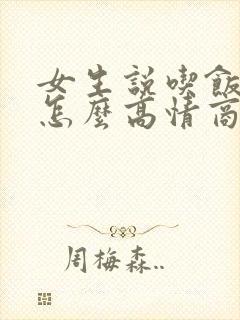 女生説喫飯
怎麽高情商
周梅森..